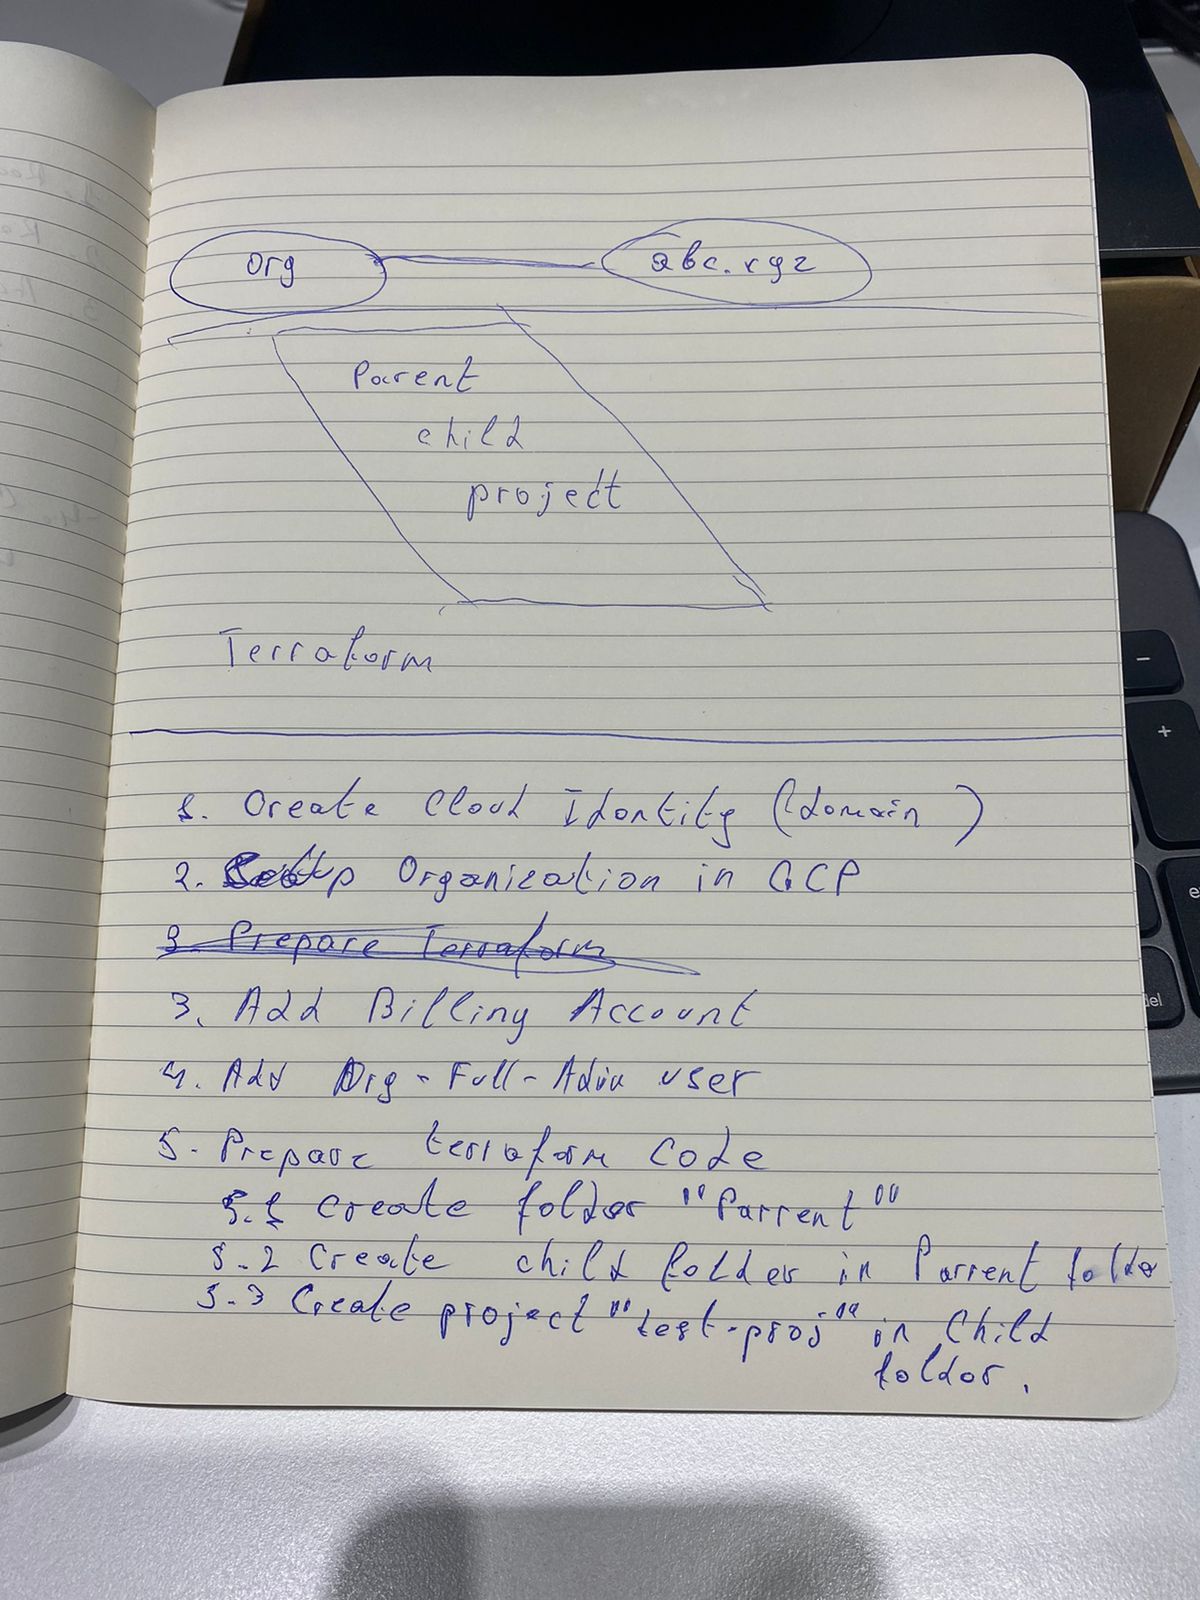 Org abc.xyz
Parent
child
project
Terraform
1. Create Cloud Identity (domain )
2. Setup Organization in GCP
3. Prepare Terraform
3. Add Billing Account
4. Add Org-Full-Admin user
5. Prepare terraform code
5.1 Create folder "Parrent"
5.2 Create child folder in Parrent folder
5.3 Create project "test-proj" in Child
folder.